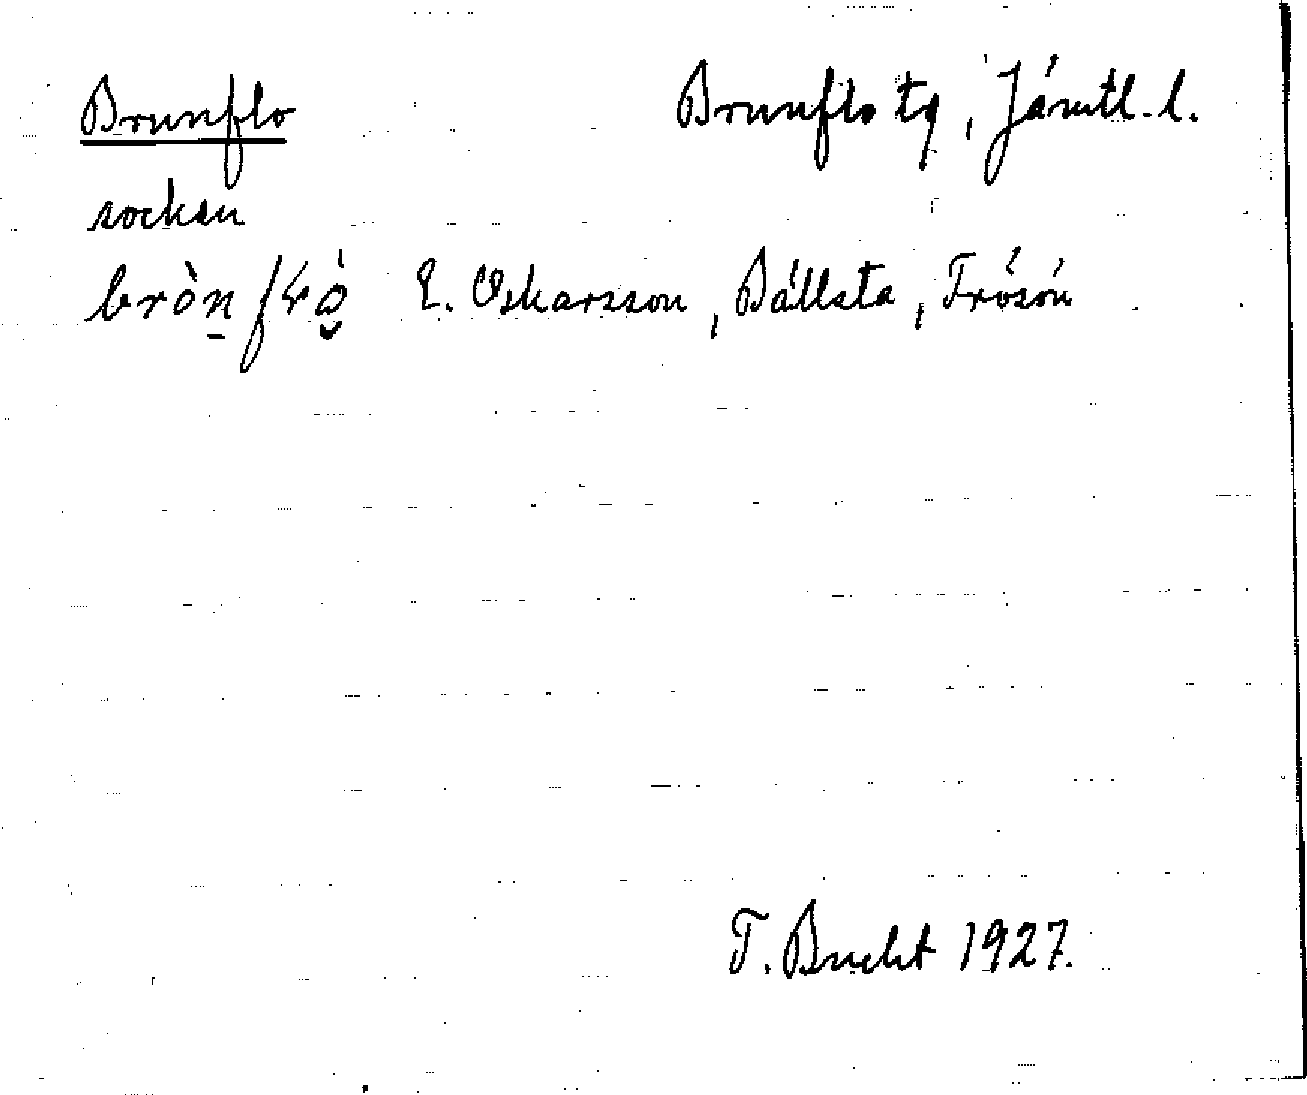 Brunflo Brunflo tg, Jämtl. l.
socken
E. Oskarsson, Bällsta, Frösön
T. Bucht 1927.